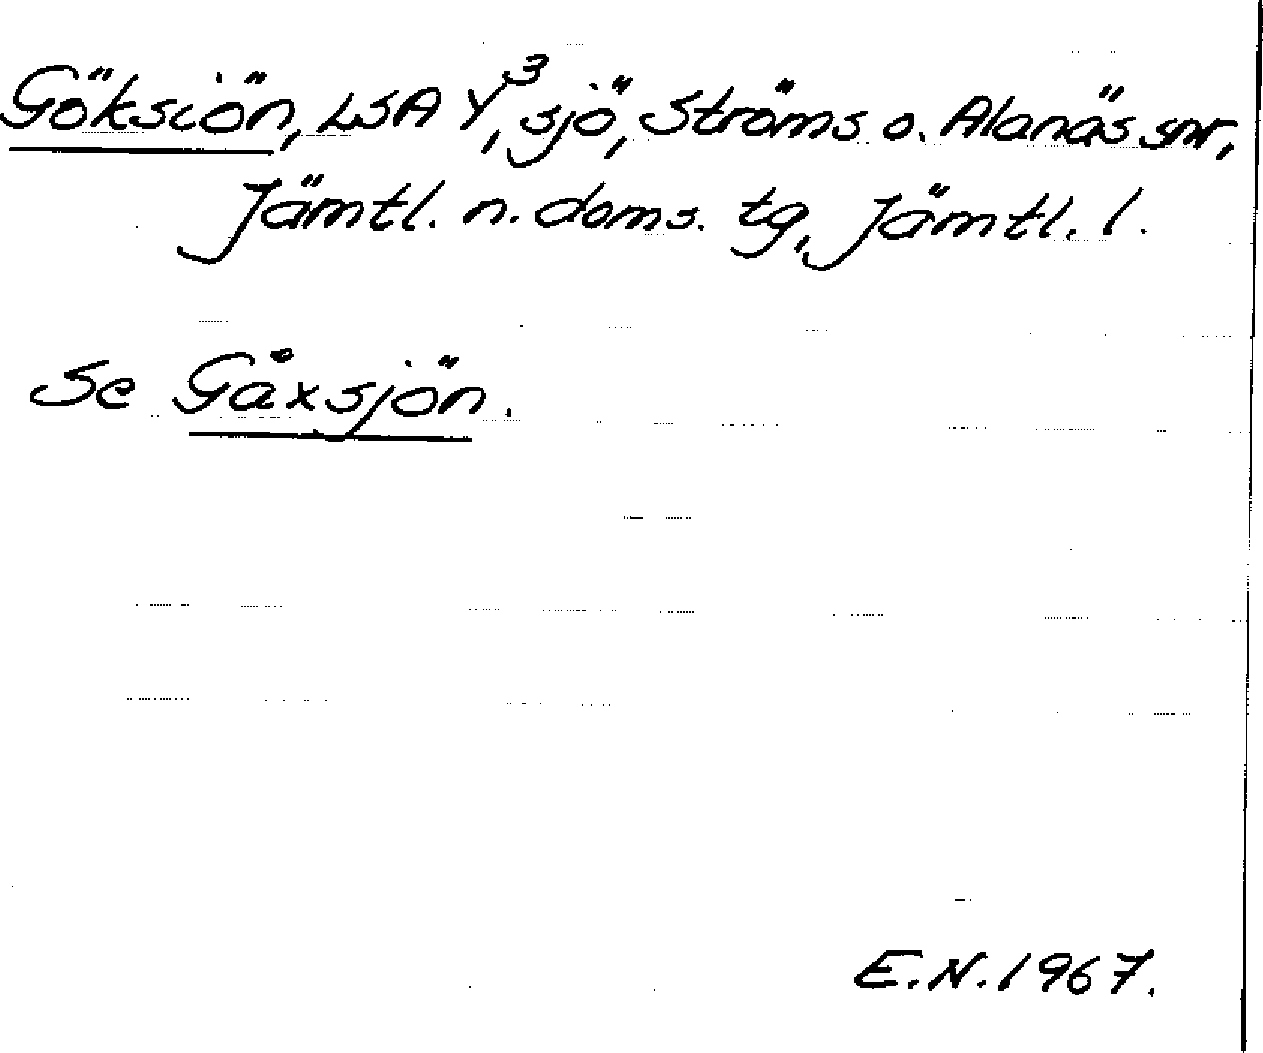 Göksiön, LSA Y³, sjö, Ströms o. Alanäs snr,
Jämtl. n. doms. tg, Jämtl. l.
Se Gåxsjön.
E.N. 1967.